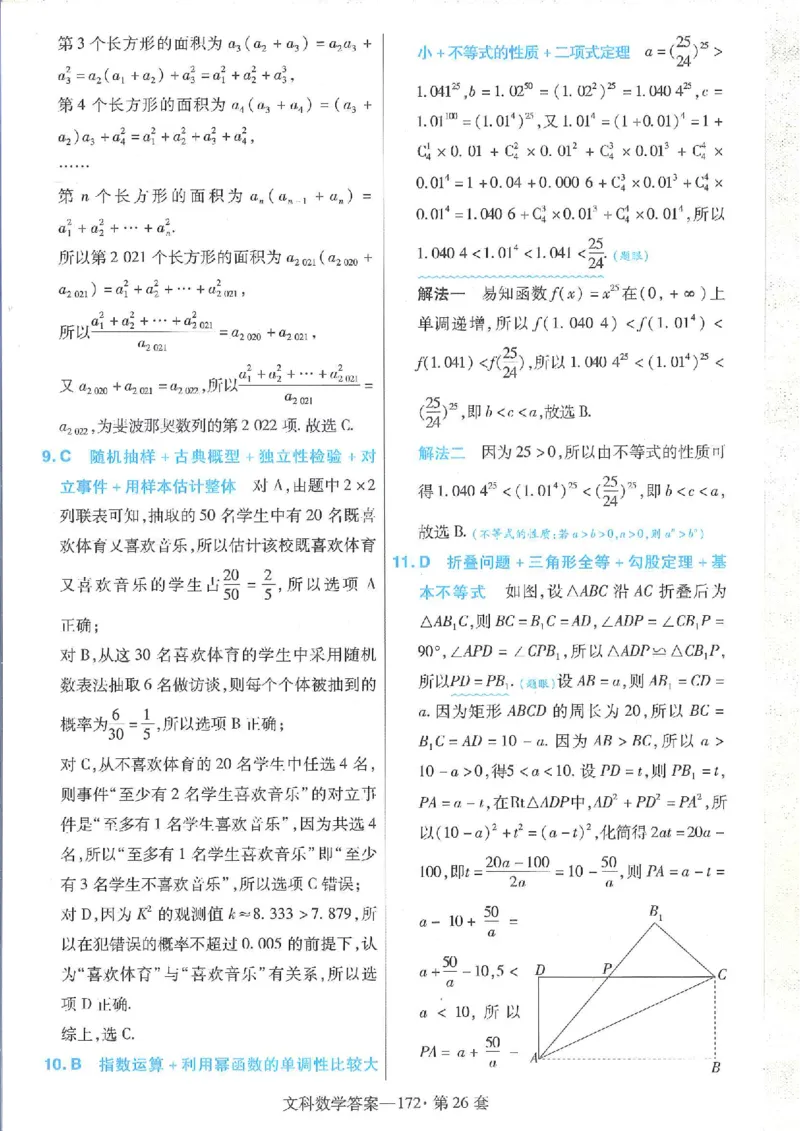 第3个长方形的面积为 a₃(a₂+a₃)=a₂a₃+
a₃²=a₂(a₁+a₂)+a₃²=a₁²+a₂²+a₃²,
第4个长方形的面积为 a₄(a₃+a₄)=(a₃+
a₂)a₃+a₄²=a₁²+a₂²+a₃²+a₄²,
……
第 n 个长方形的面积为 aₙ(aₙ₋₁+aₙ)=
a₁²+a₂²+⋯+aₙ².
所以第2 021个长方形的面积为 a₂₀₂₁(a₂₀₂₀+
a₂₀₂₁)=a₁²+a₂²+⋯+a₂₀₂₁²,
所以(a₁²+a₂²+⋯+a₂₀₂₁²)/a₂₀₂₁=a₂₀₂₀+a₂₀₂₁,
又 a₂₀₂₀+a₂₀₂₁=a₂₀₂₂,所以(a₁²+a₂²+⋯+a₂₀₂₁²)/a₂₀₂₁=
a₂₀₂₂,为斐波那契数列的第2 022项.故选C.
9.C 随机抽样+古典概型+独立性检验+对
立事件+用样本估计整体 对A,由题中2×2
列联表可知,抽取的50名学生中有20名既喜
欢体育又喜欢音乐,所以估计该校既喜欢体育
又喜欢音乐的学生占20/50=2/5,所以选项A
正确;
对B,从这30名喜欢体育的学生中采用随机
数表法抽取6名做访谈,则每个个体被抽到的
概率为6/30=1/5,所以选项B正确;
对C,从不喜欢体育的20名学生中任选4名,
则事件“至少有2名学生喜欢音乐”的对立事
件是“至多有1名学生喜欢音乐”,因为共选4
名,所以“至多有1名学生喜欢音乐”即“至少
有3名学生不喜欢音乐”,所以选项C错误;
对D,因为K²的观测值k≈8.333>7.879,所
以在犯错误的概率不超过0.005的前提下,认
为“喜欢体育”与“喜欢音乐”有关系,所以选
项D正确.
综上,选C.
10.B 指数运算+利用幂函数的单调性比较大
小+不等式的性质+二项式定理 a=(25/24)²⁵>
1.041²⁵,b=1.02⁵⁰=(1.02²)²⁵=1.040 4²⁵,c=
1.01¹⁰⁰=(1.01⁴)²⁵,又1.01⁴=(1+0.01)⁴=1+
C₄¹×0.01+C₄²×0.01²+C₄³×0.01³+C₄⁴×
0.01⁴=1+0.04+0.000 6+C₄³×0.01³+C₄⁴×
0.01⁴=1.040 6+C₄³×0.01³+C₄⁴×0.01⁴,所以
1.040 4<1.01⁴<1.041<25/24.(题眼)
解法一 易知函数f(x)=x²⁵在(0,+∞)上
单调递增,所以f(1.040 4)<f(1.01⁴)<
f(1.041)<f(25/24),所以1.040 4²⁵<(1.01⁴)²⁵<
(25/24)²⁵,即b<c<a,故选B.
解法二 因为25>0,所以由不等式的性质可
得1.040 4²⁵<(1.01⁴)²⁵<(25/24)²⁵,即b<c<a,
故选B.(不等式的性质:若a>b>0,n>0,则aⁿ>bⁿ)
11.D 折叠问题+三角形全等+勾股定理+基
本不等式 如图,设△ABC沿AC折叠后为
△AB₁C,则BC=B₁C=AD,∠ADP=∠CB₁P=
90°,∠APD=∠CPB₁,所以△ADP≌△CB₁P,
所以PD=PB₁.(题眼)设AB=a,则AB₁=CD=
a.因为矩形ABCD的周长为20,所以BC=
B₁C=AD=10-a.因为AB>BC,所以a>
10-a>0,得5<a<10.设PD=t,则PB₁=t,
PA=a-t,在Rt△ADP中,AD²+PD²=PA²,所
以(10-a)²+t²=(a-t)²,化简得2at=20a-
100,即t=(20a-100)/2a=10-50/a,则PA=a-t=
a-10+50/a=
a+50/a-10,5<
a<10,所以
PA=a+50/a-
B₁
D
P
C
A
B
文科数学答案—172·第26套